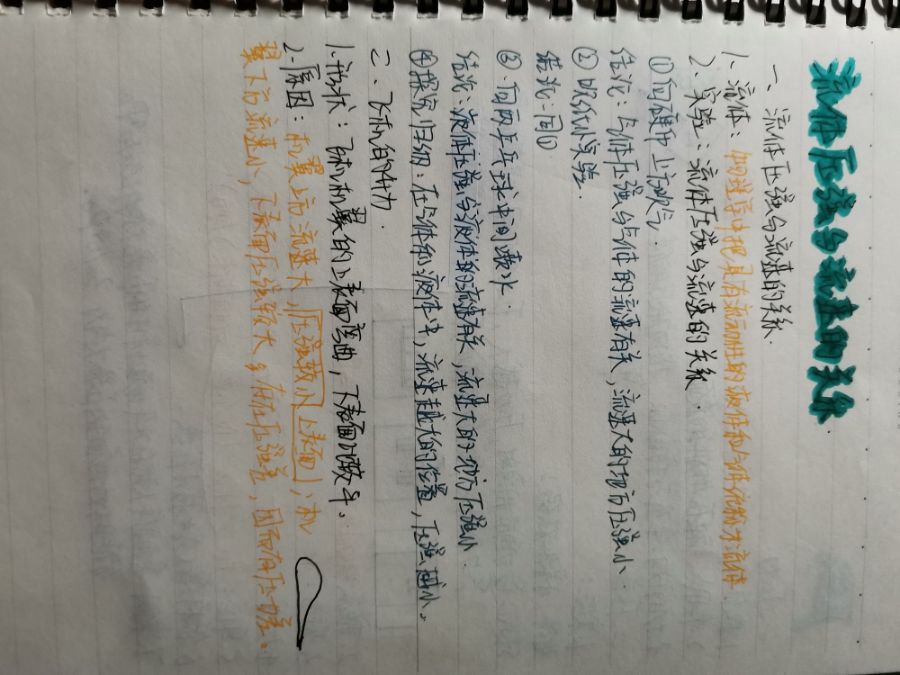 流体压强与流速的关系
一、流体压强与流速的关系.
1.流体：物理学中把具有流动性的液体和气体统称为流体
2.实验：流体压强与流速的关系.
①向硬币上方吹气.
结论：气体压强与气体的流速有关，流速大的地方压强小.
②吹纸小实验.
结论：同①
③.向两乒乓球中间喷水.
结论：液体压强与液体的流速有关，流速大的地方压强小.
④探究归纳：在气体和液体中，流速越大的位置，压强越小。
二、飞机的升力.
1.形状：飞机机翼的上表面弯曲，下表面比较平。
2.原因：机翼上方流速大，压强较小上表面，机
翼下方流速小，下表面压强较大，存在压强差，因而有压力差。